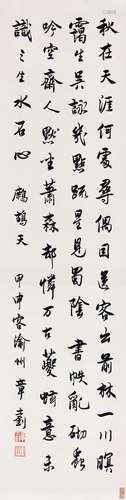 秋在天涯何處尋偶因送客出前林一川暝
靄生吳詠幾點疏星見蜀陰 書帙亂砌蟲
吟空齋人默坐蕭森却憐万古夔蚿意未
識三生水石心 鷓鴣天 甲申客渝州 章